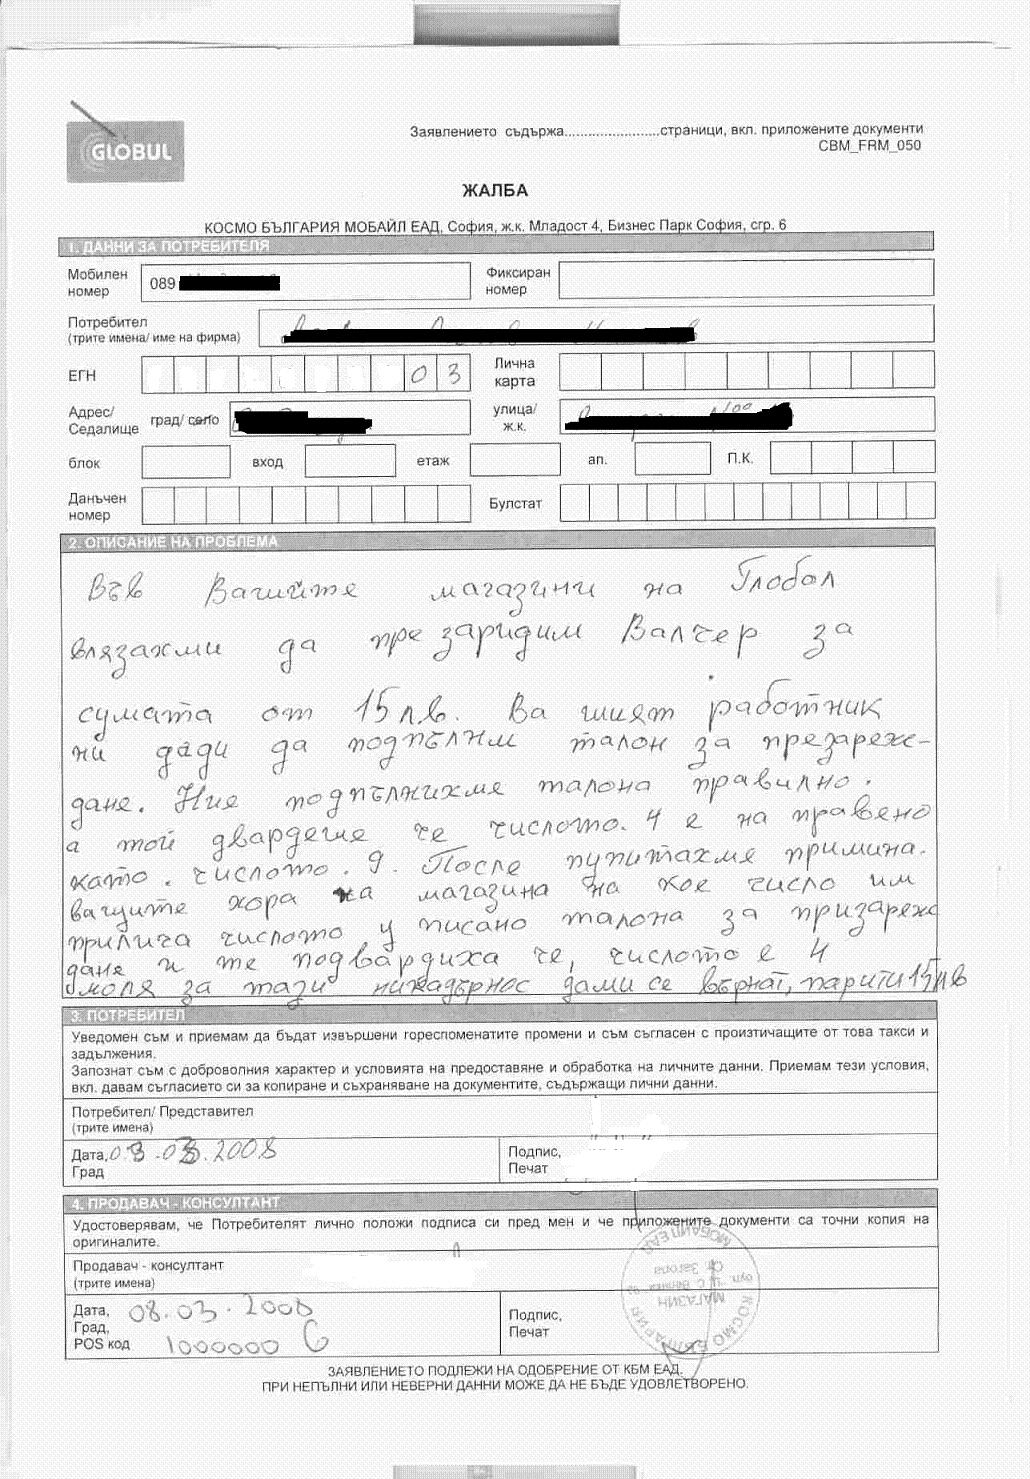 GLOBUL
Заявлението съдържа........................страници, вкл. приложените документи
CBM_FRM_050
ЖАЛБА
КОСМО БЪЛГАРИЯ МОБАЙЛ ЕАД, София, ж.к. Младост 4, Бизнес Парк София, сгр. 6
1. ДАННИ ЗА ПОТРЕБИТЕЛЯ
Мобилен номер 089
Фиксиран номер
Потребител
(трите имена/ име на фирма)
ЕГН 0 3
Лична карта
Адрес/ Седалище град/ село
улица/ ж.к.
блок вход етаж ап. П.К.
Данъчен номер
Булстат
2. ОПИСАНИЕ НА ПРОБЛЕМА
Във Вашийте магазини на Глобол
влязахми да презаридим Валчер за
сумата от 15 лв. Ва шият работник
ни дади да подпълним талон за презареж-
дане. Ние подпълнихме талона правилно.
а той двардеше че числото. 4 е на правено
като. числото. 9. После пупитахме примина.
ващите хора на магазина на кое число им
прилича числото у писано талона за призареж
дане и те подвардиха че, числото е 4
моля за тази никадърнос дами се върнат, парити 15 лв
3. ПОТРЕБИТЕЛ
Уведомен съм и приемам да бъдат извършени гореспоменатите промени и съм съгласен с произтичащите от това такси и
задължения.
Запознат съм с доброволния характер и условията на предоставяне и обработка на личните данни. Приемам тези условия,
вкл. давам съгласието си за копиране и съхраняване на документите, съдържащи лични данни.
Потребител/ Представител
(трите имена)
Дата, 03.03.2008
Град
Подпис,
Печат
4. ПРОДАВАЧ - КОНСУЛТАНТ
Удостоверявам, че Потребителят лично положи подписа си пред мен и че приложените документи са точни копия на
оригиналите.
Продавач - консултант
(трите имена)
Дата, 08.03.2008
Град,
POS код 1000000 6
Подпис,
Печат
КОСМО БЪЛГАРИЯ МОБАЙЛ ЕАД
МАГАЗИН
Ст. Загора
ЗАЯВЛЕНИЕТО ПОДЛЕЖИ НА ОДОБРЕНИЕ ОТ КБМ ЕАД.
ПРИ НЕПЪЛНИ ИЛИ НЕВЕРНИ ДАННИ МОЖЕ ДА НЕ БЪДЕ УДОВЛЕТВОРЕНО.